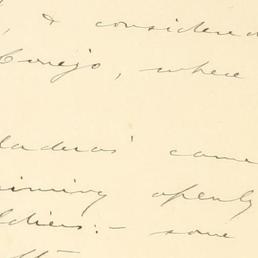 , & considered
Conejo, where
laderas' came
aiming openly
ldiers: - some